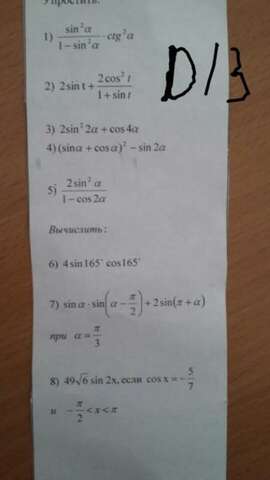 Упростить:
1) sin²α / (1 − sin²α) · ctg²α
D/З
2) 2sin t + 2cos² t / (1 + sin t)
3) 2sin² 2α + cos4α
4) (sinα + cosα)² − sin 2α
5) 2sin² α / (1 − cos2α)
Вычислить:
6) 4sin165° cos165°
7) sin α · sin(α − π/2) + 2sin(π + α)
при α = π/3
8) 49√6 sin 2x, если cos x = − 5/7
и − π/2 < x < π